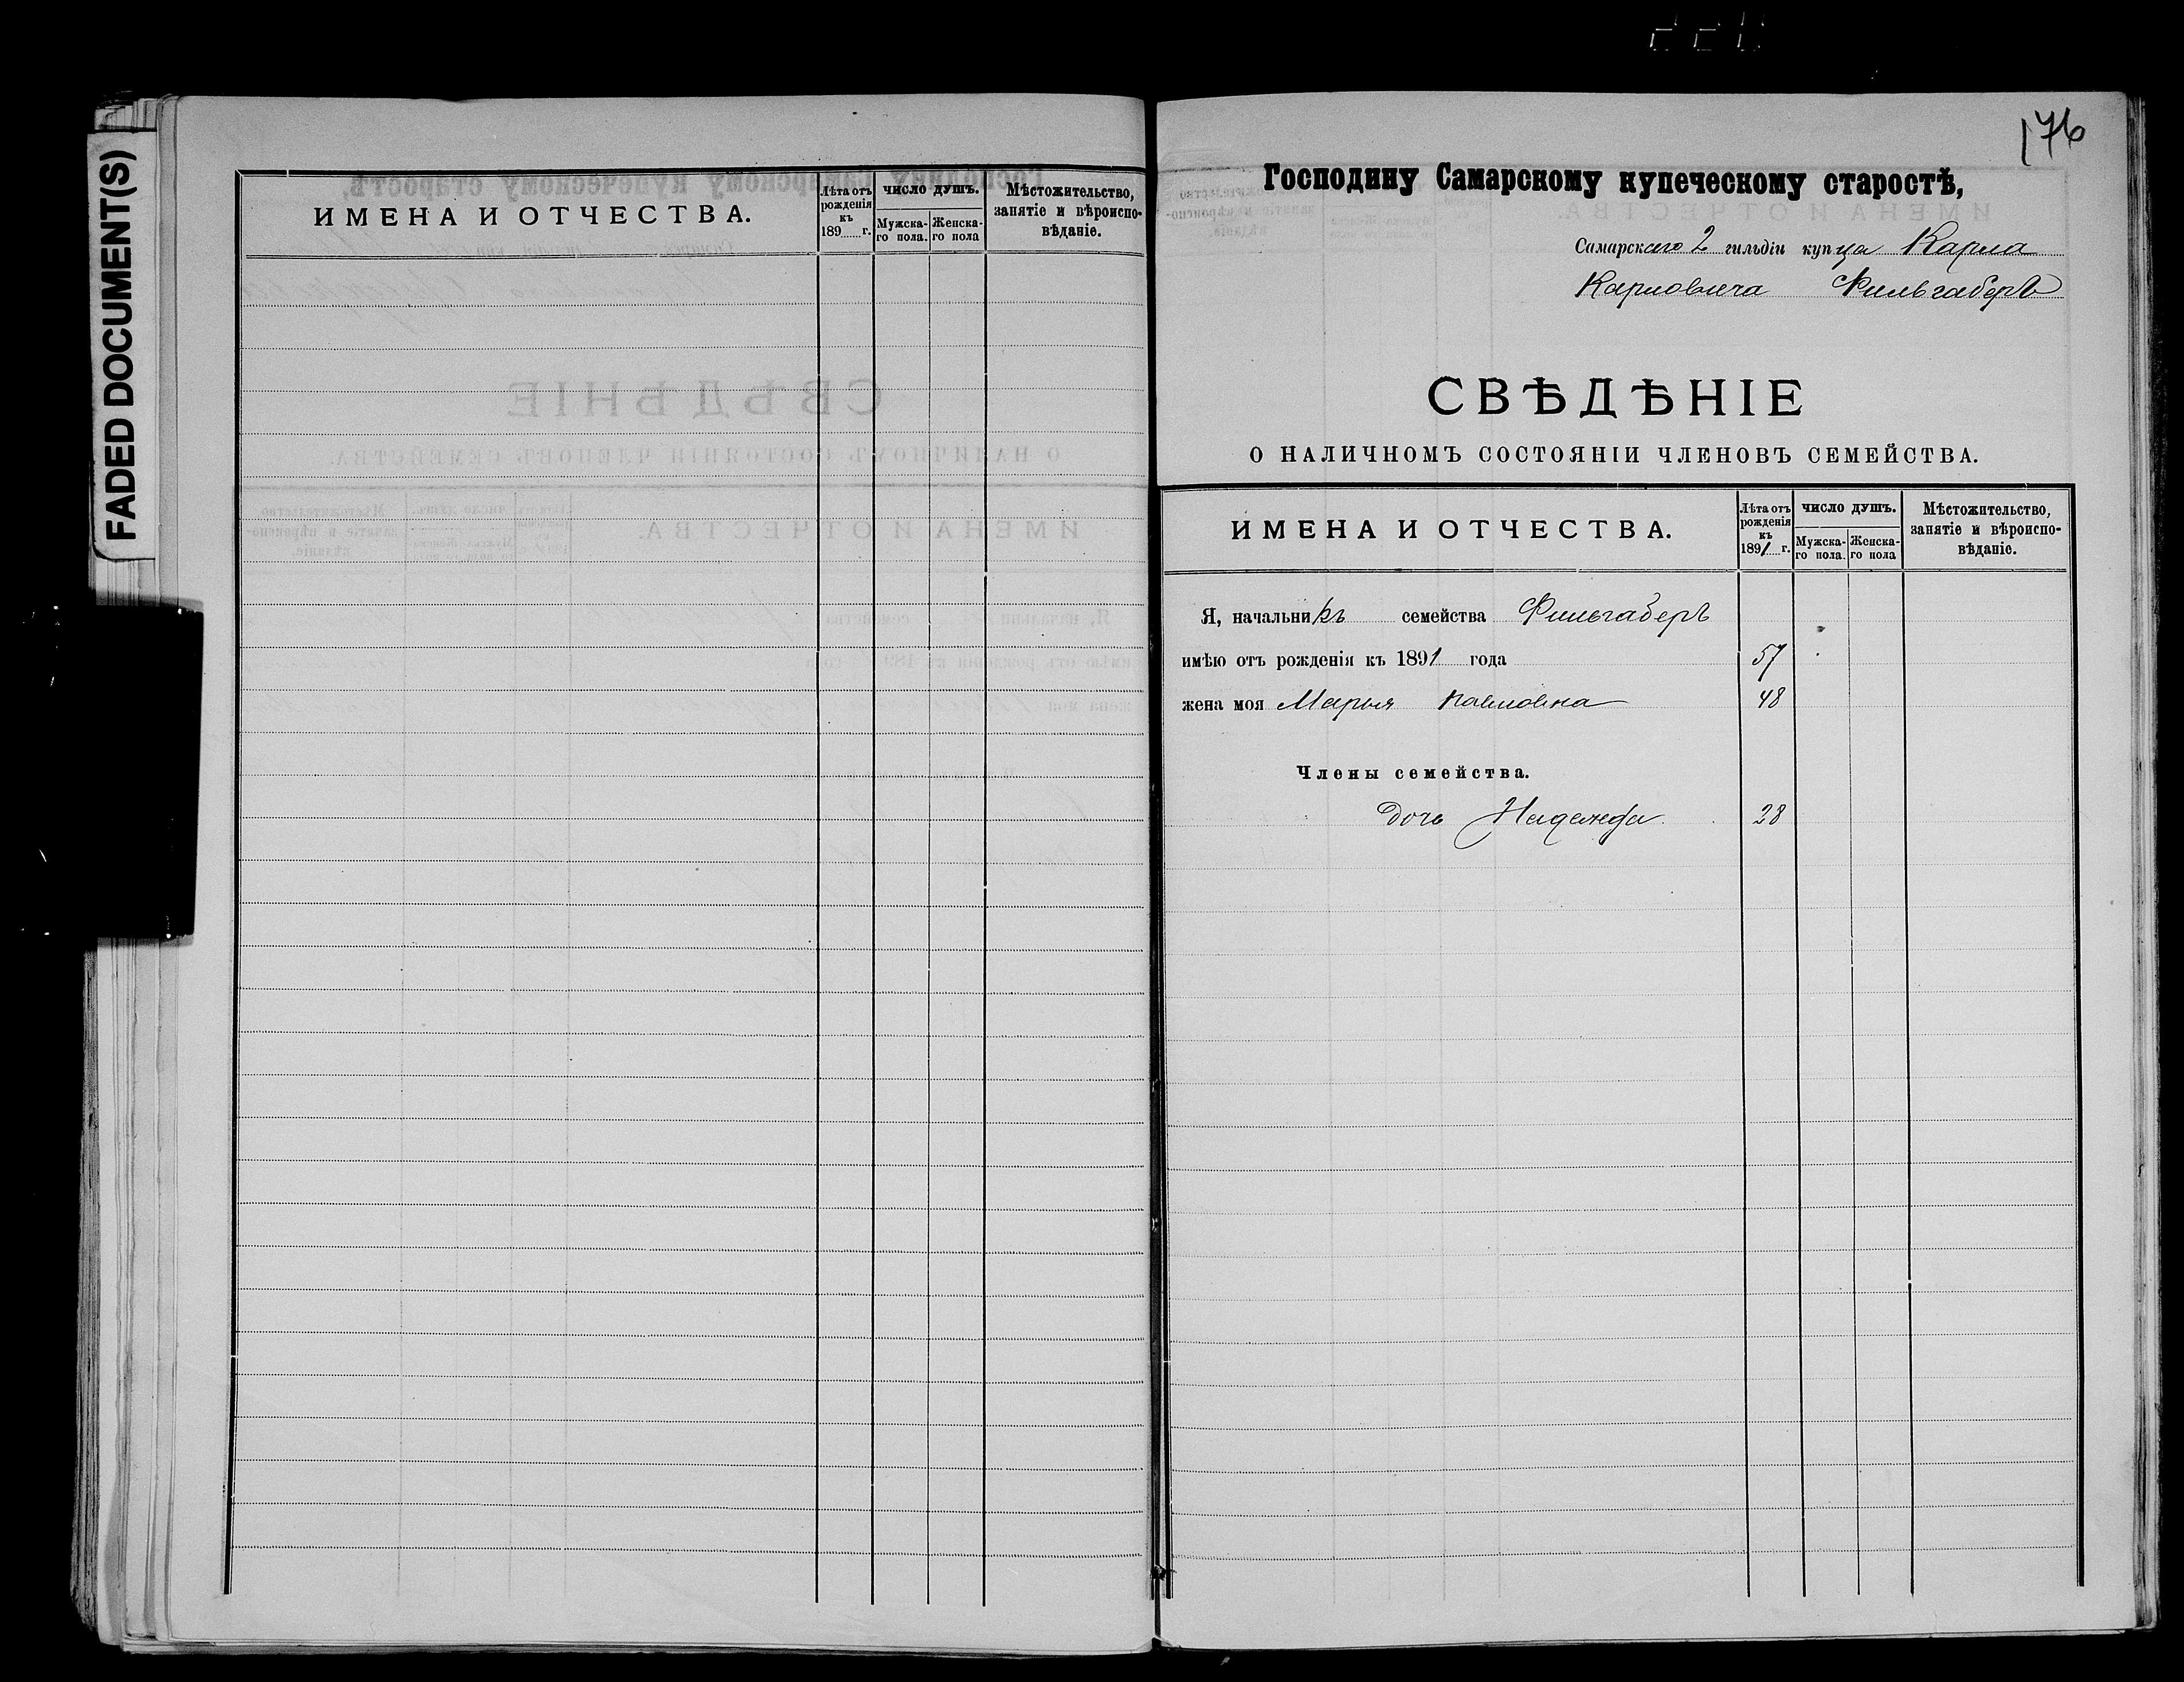 FADED DOCUMENT(S)
ИМЕНА И ОТЧЕСТВА.
Лѣта отъ рожденія къ 189 г.
ЧИСЛО ДУШЪ.
Мужска-го пола.
Женска-го пола
Мѣстожительство, занятіе и вѣроиспо-вѣданіе.
176
Господину Самарскому купеческому старостѣ,
Самарскаго 2 гильдіи купца Карла
Карловича Фильгаберъ
СВѢДѢНІЕ
О НАЛИЧНОМЪ СОСТОЯНІИ ЧЛЕНОВЪ СЕМЕЙСТВА.
ИМЕНА И ОТЧЕСТВА.
Лѣта отъ рожденія къ 1891 г.
ЧИСЛО ДУШЪ.
Мужска-го пола.
Женска-го пола
Мѣстожительство, занятіе и вѣроиспо-вѣданіе.
Я, начальникъ семейства Фильгаберъ
имѣю отъ рожденія къ 1891 года 57
жена моя Марья Павловна 48
Члены семейства.
дочь Надежда 28